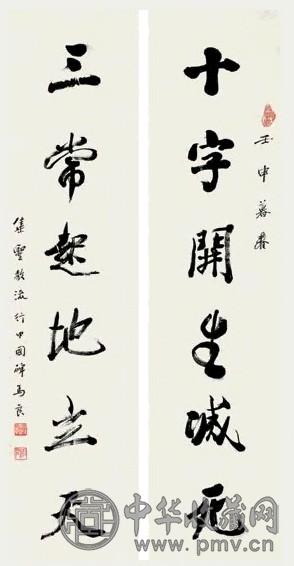 壬申暮春
十字開生滅死
三常起地立天
集景教流行中國碑 馬良
中华收藏网
www.pmv.cn